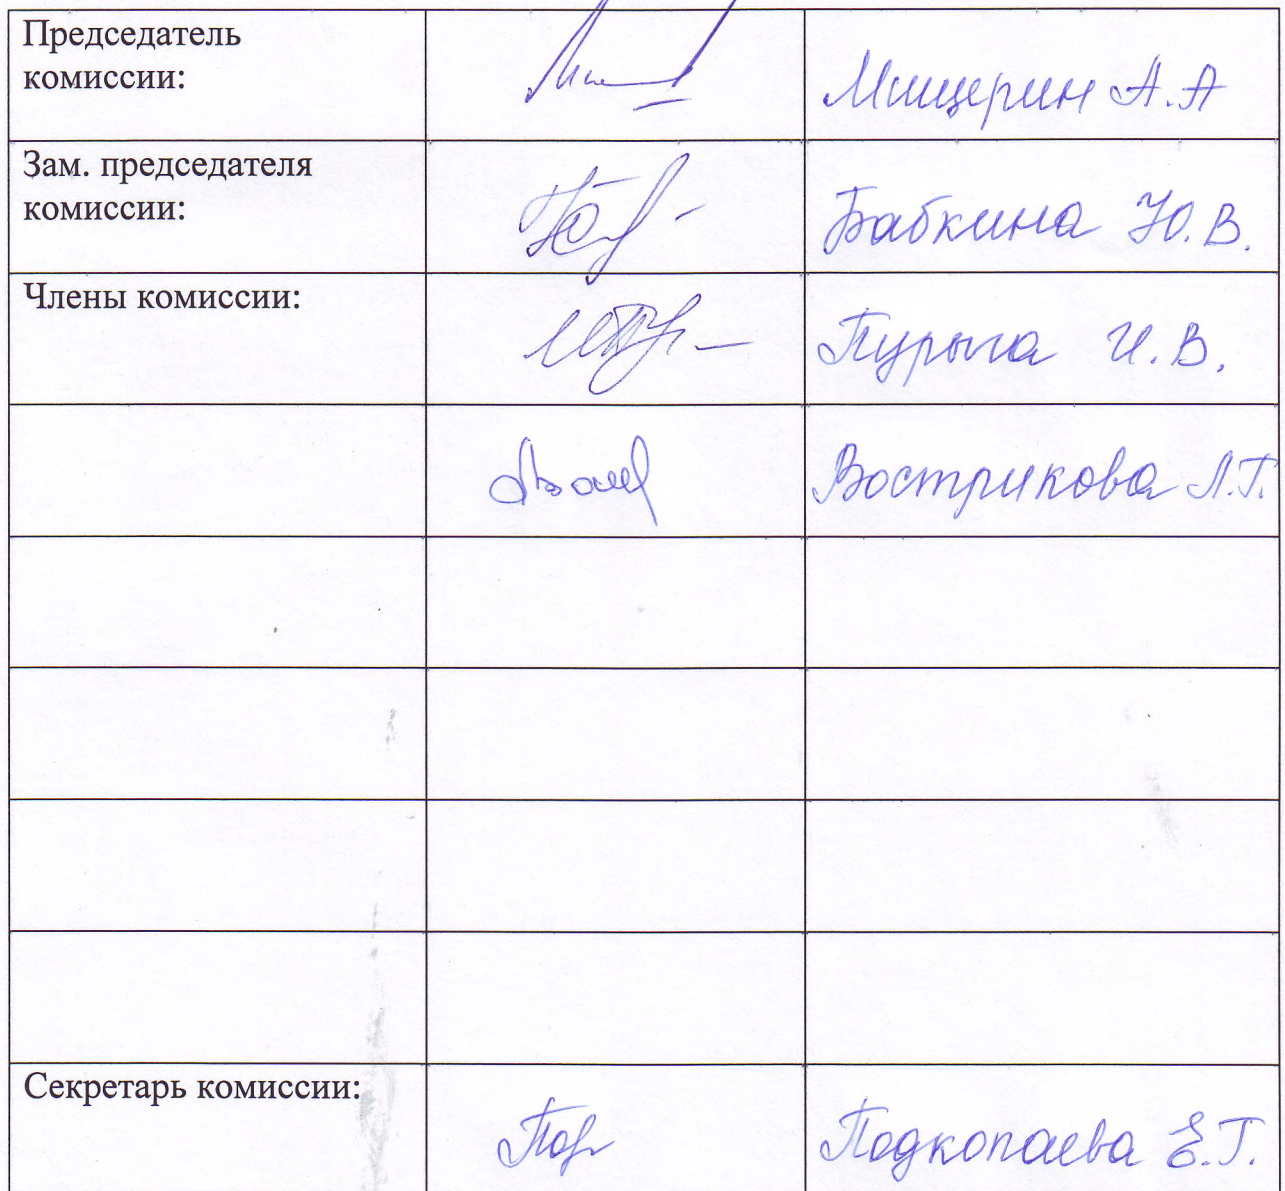 Председатель
комиссии:
Мищерин А.А
Зам. председателя
комиссии:
Бабкина Ю.В.
Члены комиссии:
Пурыга И.В.
Вострикова Л.Г.
Секретарь комиссии:
Подкопаева Е.Г.